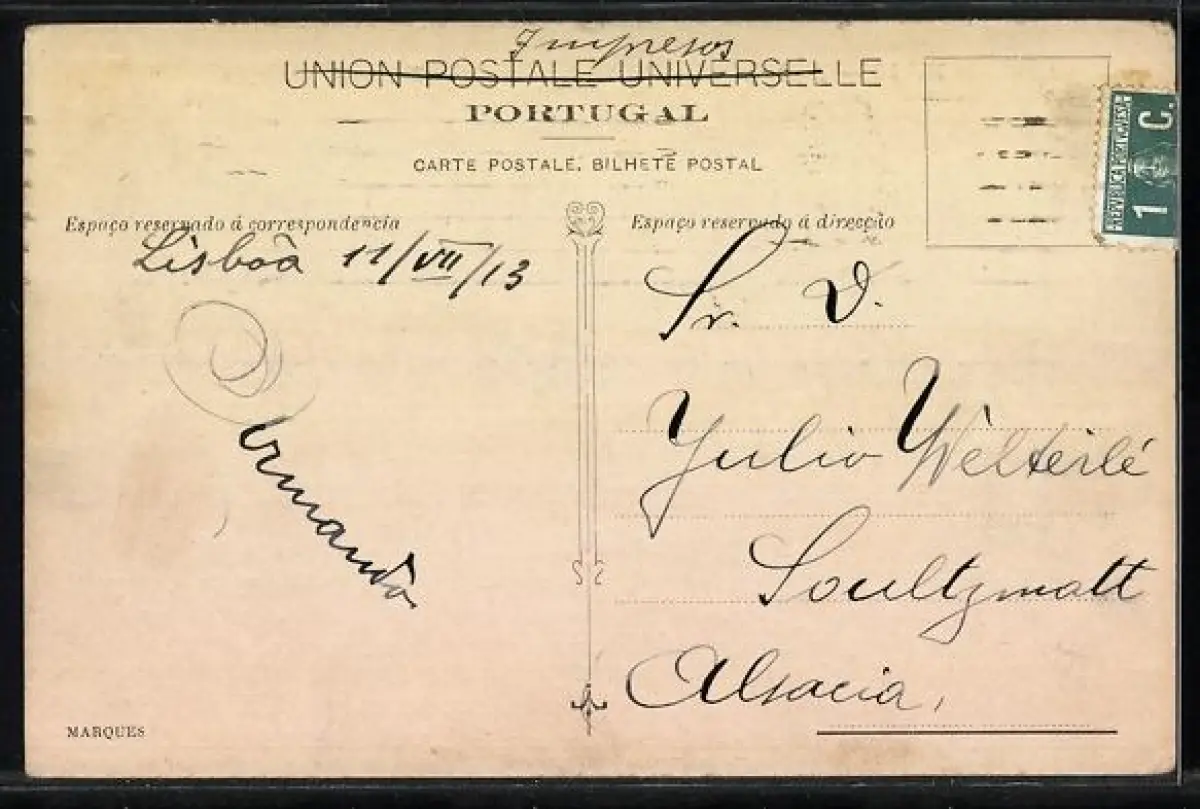 Impresos
UNION POSTALE UNIVERSELLE
PORTUGAL
CARTE POSTALE. BILHETE POSTAL
Espaço reservado á correspondencia
Lisbôa 11/VII/13
Armando
MARQUES
Espaço reservado á direcção
Sr. D.
Yulio Wèlterlé
Soultzmatt
Alsacia,
REPUBLICA PORTUGUESA
1 C.